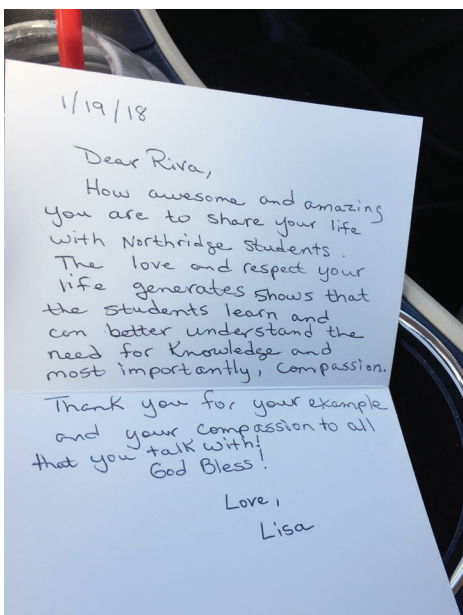 1/19/18
Dear Riva,
How awesome and amazing
you are to share your life
with Northridge Students.
The love and respect your
life generates shows that
the students learn and
can better understand the
need for Knowledge and
most importantly, compassion.
Thank you for your example
and your compassion to all
that you talk with!
God Bless!
Love,
Lisa